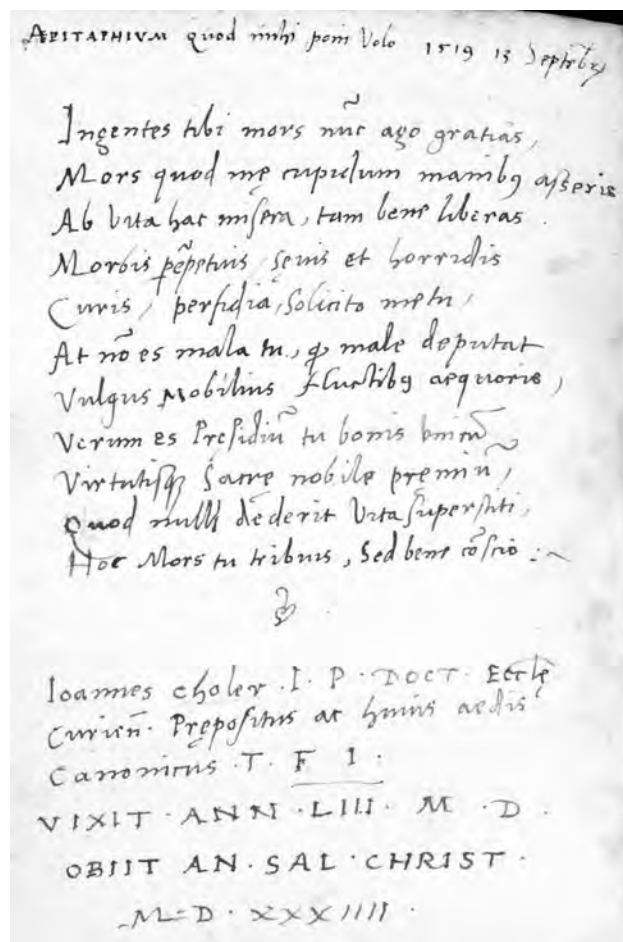 AEPITAPHIVM quod mihi poni Volo 1519 13 Septẽbry
Ingentes tibi mors nũc ago gratias,
Mors quod mę cupidum manibꝯ asseris
Ab Vita hac misera, tam bene liberas
Morbis ꝑpetuis, sęuis et horridis
Curis, perfidia, Solicito metu,
At nõ es mala tu, quã male deputat
Vulgus Mobilius Fluctibꝯ aequoris,
Verum es Pręsidiũ tu bonis vnicũ
Virtutisqꝫ Sacrę nobile pręmiũ,
Quod nulli dederit Vita superstiti,
Hoc Mors tu tribuis, Sed bene cõscio :~
Ioannes choler · I · P · DOCT · Eccłę
Curieñ · Prępositus ac huius aedis
Canonicus · T · F I ·
VIXIT · ANN · LIII · M · D ·
OBIIT AN · SAL · CHRIST ·
M · D · XXXIIII ·